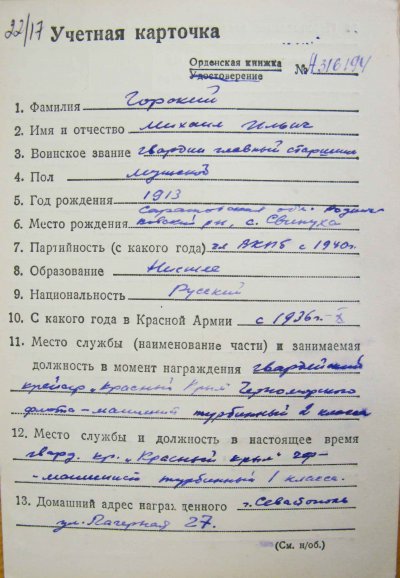 22/17 Учетная карточка
Орденская книжка
Удостоверение № А316194
1. Фамилия Горокий
2. Имя и отчество Михаил Ильич
3. Воинское звание гвардии главный старшина
4. Пол мужской
5. Год рождения 1913
Саратовская обл. Родни-
6. Место рождения ковский рн, с. Свинуха
7. Партийность (с какого года) чл ВКПб с 1940г.
8. Образование Низшее
9. Национальность Русский
10. С какого года в Красной Армии с 1936г. - X
11. Место службы (наименование части) и занимаемая
должность в момент награждения гвардейский
крейсер "Красный Крым" Черноморского
флота - машинист турбинный 2 класса
12. Место службы и должность в настоящее время
гвард. кр. "Красный крым" чф -
- машинист турбинный 1 класса.
13. Домашний адрес награжденного г. Севастополь
ул. Лагерная 27.
(См. н/об.)